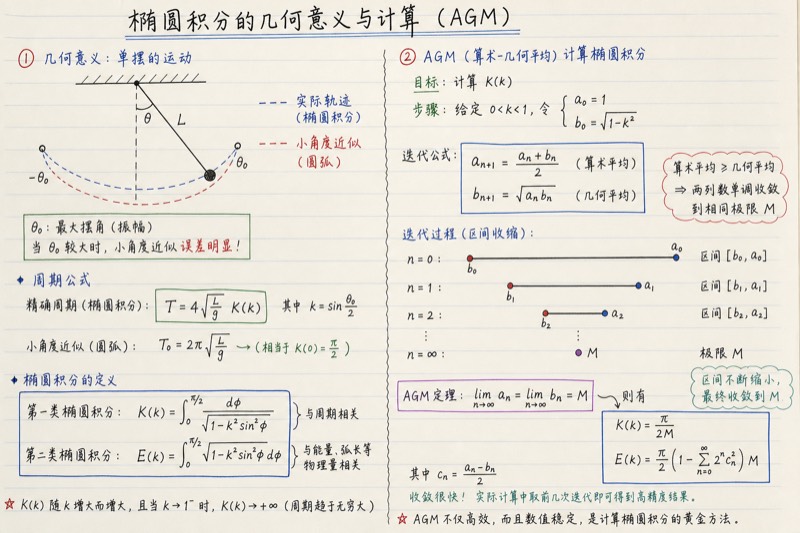 椭圆积分的几何意义与计算 (AGM)
① 几何意义：单摆的运动
θ
L
-θ₀
θ₀
--- 实际轨迹
(椭圆积分)
--- 小角度近似
(圆弧)
θ₀：最大摆角 (振幅)
当 θ₀ 较大时，小角度近似误差明显！
✦ 周期公式
精确周期 (椭圆积分)： T = 4√(L/g) K(k) 其中 k = sin θ₀/2
小角度近似 (圆弧)： T₀ = 2π√(L/g) → (相当于 K(0) = π/2)
✦ 椭圆积分的定义
第一类椭圆积分： K(k) = ∫₀^{π/2} dφ / √(1-k² sin² φ) } 与周期相关
第二类椭圆积分： E(k) = ∫₀^{π/2} √(1-k² sin² φ) dφ } 与能量、弧长等
物理量相关
☆ K(k) 随 k 增大而增大，且当 k → 1⁻ 时，K(k) → +∞ (周期趋于无穷大)
② AGM (算术-几何平均) 计算椭圆积分
目标：计算 K(k)
步骤：给定 0<k<1，令 { a₀ = 1
b₀ = √(1-k²)
迭代公式： aₙ₊₁ = (aₙ + bₙ)/2 (算术平均)
bₙ₊₁ = √(aₙ bₙ) (几何平均)
算术平均 ≥ 几何平均
⇒ 两列数单调收敛
到相同极限 M
迭代过程 (区间收缩)：
n = 0： b₀ a₀ 区间 [b₀, a₀]
n = 1： b₁ a₁ 区间 [b₁, a₁]
n = 2： b₂ a₂ 区间 [b₂, a₂]
⋮ ⋮
n = ∞： M 极限 M
区间不断缩小，
最终收敛到 M
AGM 定理： lim_{n→∞} aₙ = lim_{n→∞} bₙ = M 则有
K(k) = π/2M
E(k) = π/2 (1 - ∑_{n=0}^{∞} 2ⁿ cₙ²) M
其中 cₙ = (aₙ - bₙ)/2
收敛很快！实际计算中取前几次迭代即可得到高精度结果。
☆ AGM 不仅高效，而且数值稳定，是计算椭圆积分的黄金方法。